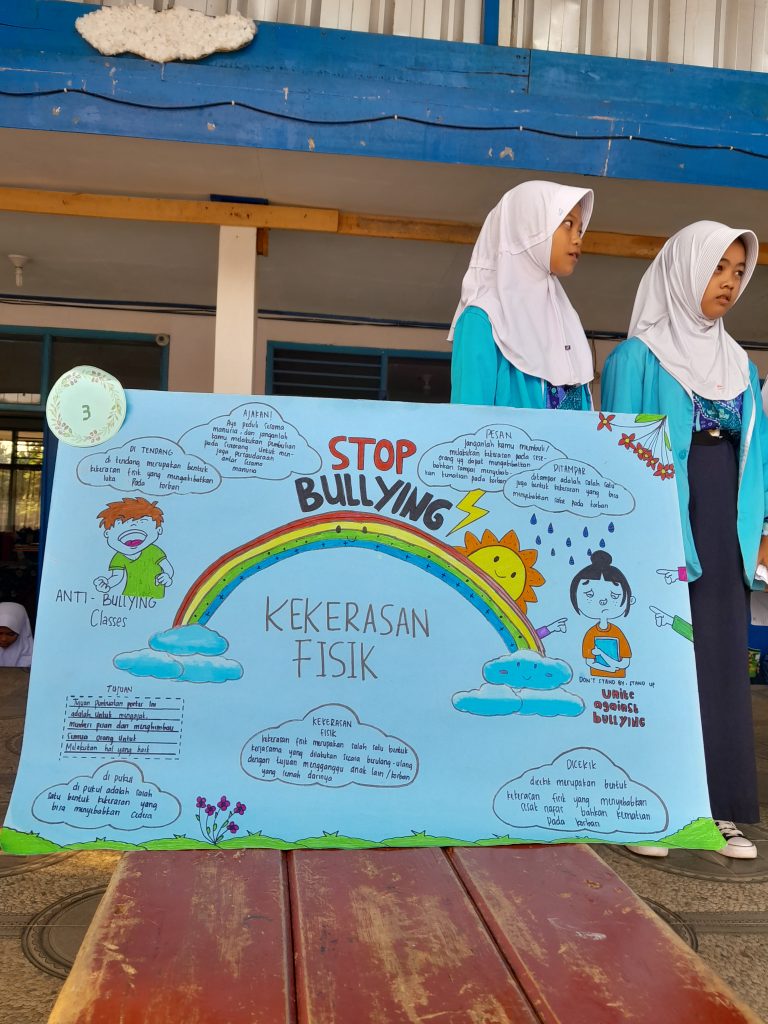 3
AJAKAN!
Ayo peduli sesama
manusia dan janganlah
kamu melakukan pembulian
pada seseorang untuk men-
jaga persaudaraan
antar sesama
manusia
DI TENDANG
di tendang merupakan bentuk
kekerasan fisik yang mengakibatkan
luka pada korban
STOP
BULLYING
PESAN
Janganlah kamu membuli /
melakukan kekerasan pada sese-
orang yg dapat mengakibat
bahkan sampai menyebab-
kan kematian pada korban
DITAMPAR
ditampar adalah salah satu
juga bentuk kekerasan yang bisa
menyebabkan sakit pada korban
ANTI - BULLYING
Classes
KEKERASAN
FISIK
DON'T STAND BY, STAND UP
unite
against
bullying
TUJUAN
Tujuan Pembuatan poster ini
adalah untuk mengajak,
memberi pesan dan menghimbau
semua orang untuk
Melakukan hal yang baik
KEKERASAN
FISIK
kekerasan fisik merupakan salah satu bentuk
kerjasama yang dilakukan secara berulang-ulang
dengan tujuan mengganggu anak lain / korban
yang lemah darinya
DI PUKUL
di pukul adalah salah
satu bentuk kekerasan yang
bisa menyebabkan cedera
DICEKIK
dicekik merupakan bentuk
kekerasan fisik yang menyebabkan
sesak nafas bahkan kematian
pada korban